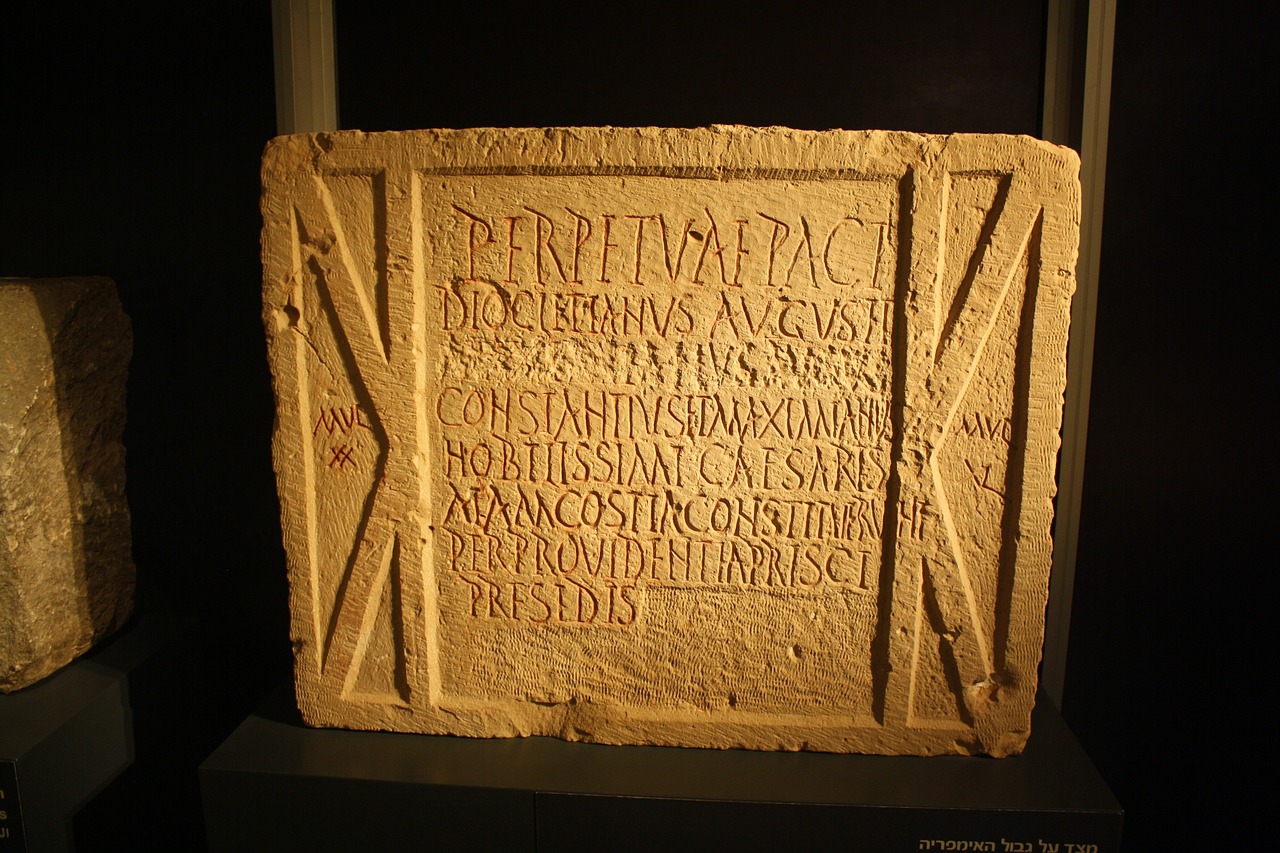 PERPETVAE PACI
DIOCLETIANVS AVGVS ET
CONSTANTIVS ET MAXIMIANVS
NOBILISSIMI CAESARIS
ALAM COSTIA CONSTITVERVNT
PER PROVIDENTIA PRISCI
PRESIDIS
MVL
XX
MVL
מצד על גבול האימפריה